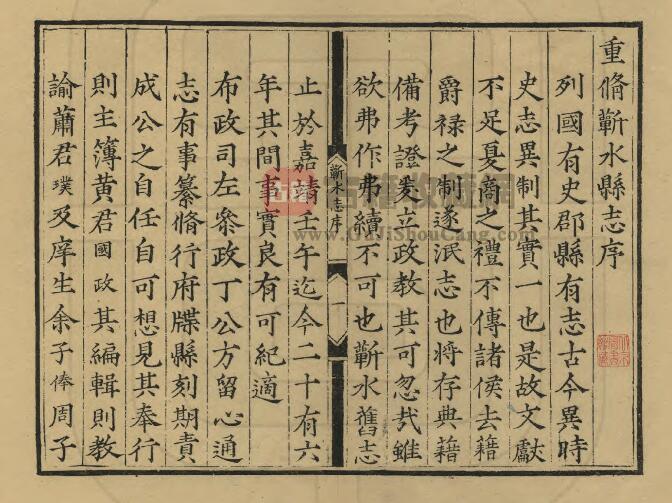 重脩蘄水縣志序
列國有史郡縣有志古今異時
史志異制其實一也是故文獻
不足夏商之禮不傳諸侯去籍
爵祿之制遂泯志也將存典籍
備考證爰立政教其可忽哉雖
欲弗作弗續不可也蘄水舊志
蘄水志序
一
止於嘉靖壬午迄今二十有六
年其間事實良有可紀適
布政司左叅政丁公方留心通
志有事纂脩行府牒縣刻期責
成公之自任自可想見其奉行
則主簿黄君國政其編輯則教
諭蕭君璞及庠生余子俸周子
www.GuJiShouCang.com